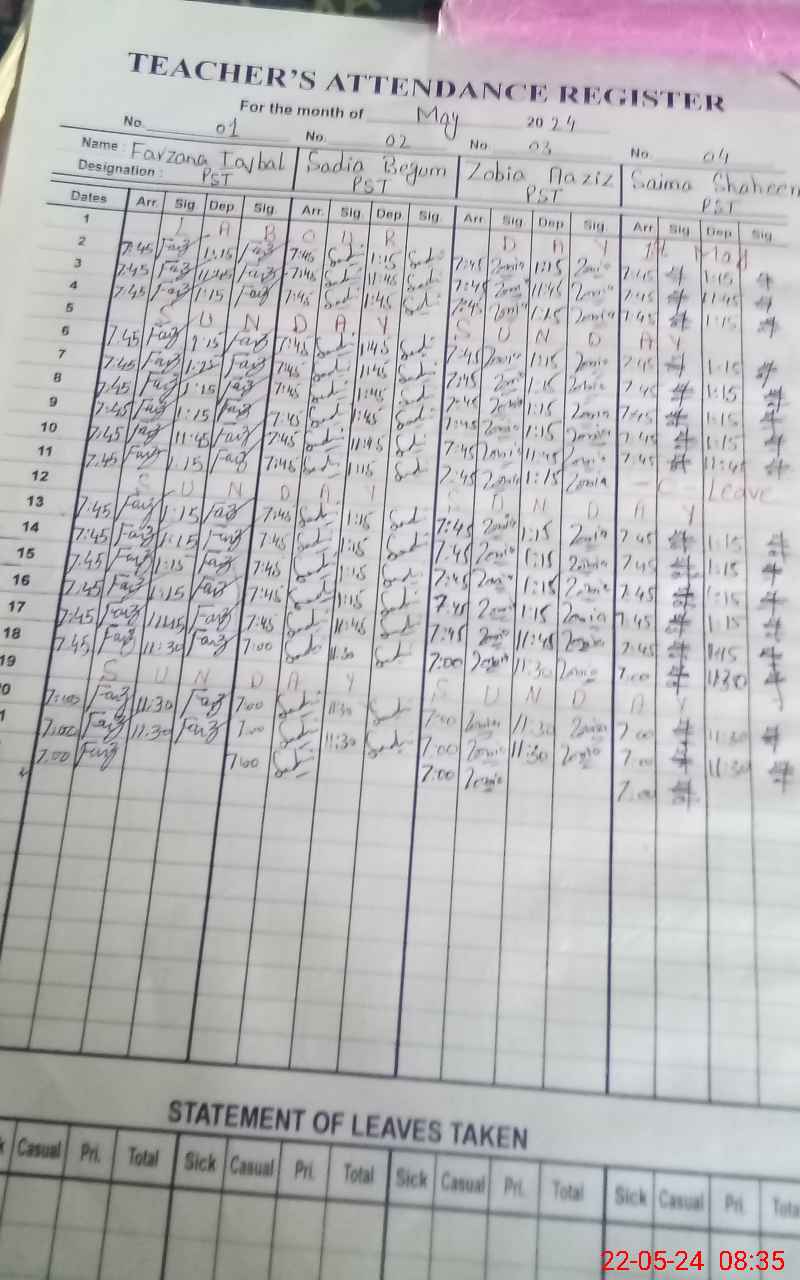 TEACHER'S ATTENDANCE REGISTER
For the month of May 2024
No. 01 No. 02 No. 03 No. 04
Name : Farzana Iqbal Sadia Begum Zobia Aaziz Saima Shaheen
Designation : PST PST PST PST
Dates Arr. Sig. Dep. Sig. Arr. Sig. Dep. Sig. Arr. Sig. Dep. Sig. Arr. Sig. Dep. Sig.
1 L A B O U R D A Y 1st May
2 7:45 Farz 1:15 Farz 7:45 Sadi 1:15 Sadi 7:45 Zobia 1:15 Zobia 7:45 1:15
3 7:45 Farz 11:45 Farz 7:45 Sadi 11:45 Sadi 7:45 Zobia 11:45 Zobia 7:45 11:45
4 7:45 Farz 1:15 Farz 7:45 Sadi 1:45 Sadi 7:45 Zobia 1:15 Zobia 7:45 1:15
5 S U N D A Y S U N D A Y
6 7:45 Farz Farz 7:45 Sadi 1:45 Sadi 7:45 Zobia 1:15 Zobia 7:45 1:15
7 7:45 Farz Farz 7:45 Sadi Sadi 7:45 Zobia 1:15 Zobia 7:45 1:15
8 7:45 Farz 1:15 Farz 7:45 Sadi 1:45 Sadi 7:45 Zobia 1:15 Zobia 7:45 1:15
9 7:45 Farz 1:15 Farz 7:45 Sadi 1:45 Sadi 7:45 Zobia 1:15 Zobia 7:45 1:15
10 7:45 Farz 11:45 Farz 7:45 Sadi 11:45 Sadi 7:45 Zobia 11:45 Zobia 7:45 11:45
11 7:45 Farz 1:15 Farz 7:45 Sadi 1:15 Sadi 7:45 Zobia 1:15 Zobia - C - Leave
12 S U N D A Y S U N D A Y
13 7:45 Farz 1:15 Farz 7:45 Sadi 1:15 Sadi 7:45 Zobia 1:15 Zobia 7:45 1:15
14 7:45 Farz 1:15 Farz 7:45 Sadi 1:15 Sadi 7:45 Zobia 1:15 Zobia 7:45 1:15
15 7:45 Farz 1:15 Farz 7:45 Sadi 1:15 Sadi 7:45 Zobia 1:15 Zobia 7:45 1:15
16 7:45 Farz 1:15 Farz 7:45 Sadi 1:15 Sadi 7:45 Zobia 1:15 Zobia 7:45 1:15
17 7:45 Farz 11:45 Farz 7:45 Sadi 11:45 Sadi 7:45 Zobia 11:45 Zobia 7:45
18 7:45 Farz 11:30 Farz 7:00 Sadi 11:30 Sadi 7:00 Zobia 11:30 Zobia 7:00 11:30
19 S U N D A Y S U N D A Y
0 7:00 Farz 11:30 Farz 7:00 Sadi 11:30 Sadi 7:00 Zobia 11:30 Zobia 7:00 11:30
1 7:00 Farz 11:30 Farz 7:00 Sadi 11:30 Sadi 7:00 Zobia 11:30 Zobia 7:00 11:30
7:00 Farz 7:00 Sadi 7:00 Zobia 7:00
STATEMENT OF LEAVES TAKEN
k Casual Pri. Total Sick Casual Pri. Total Sick Casual Pri. Total Sick Casual Pri. Tota
22-05-24 08:35